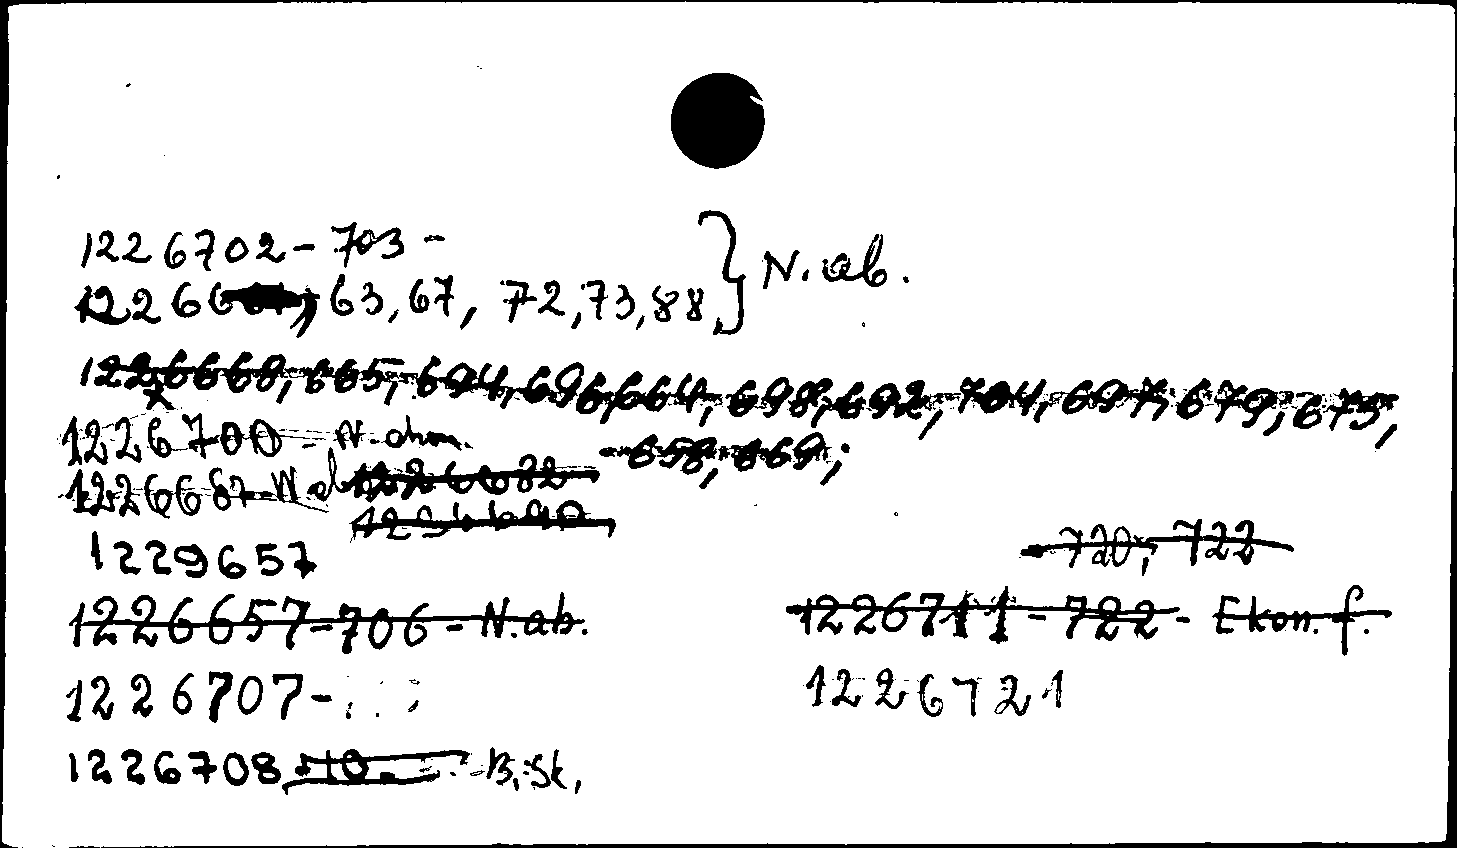 1226702 - 703 -
12266 63, 67, 72, 73, 88, } N. ab.
1226668, 665, 694, 696, 664, 698, 692, 704, 697, 679, 675,
658, 669;
1226700 - N. dom.
1226687 - N ab
1226682
1226690,
1229657
720, 722
1226657 - 706 - N. ab.
1226711 - 722 - Ekon. f.
1226707 -
1226721
1226708 - 10 - B. Sk,